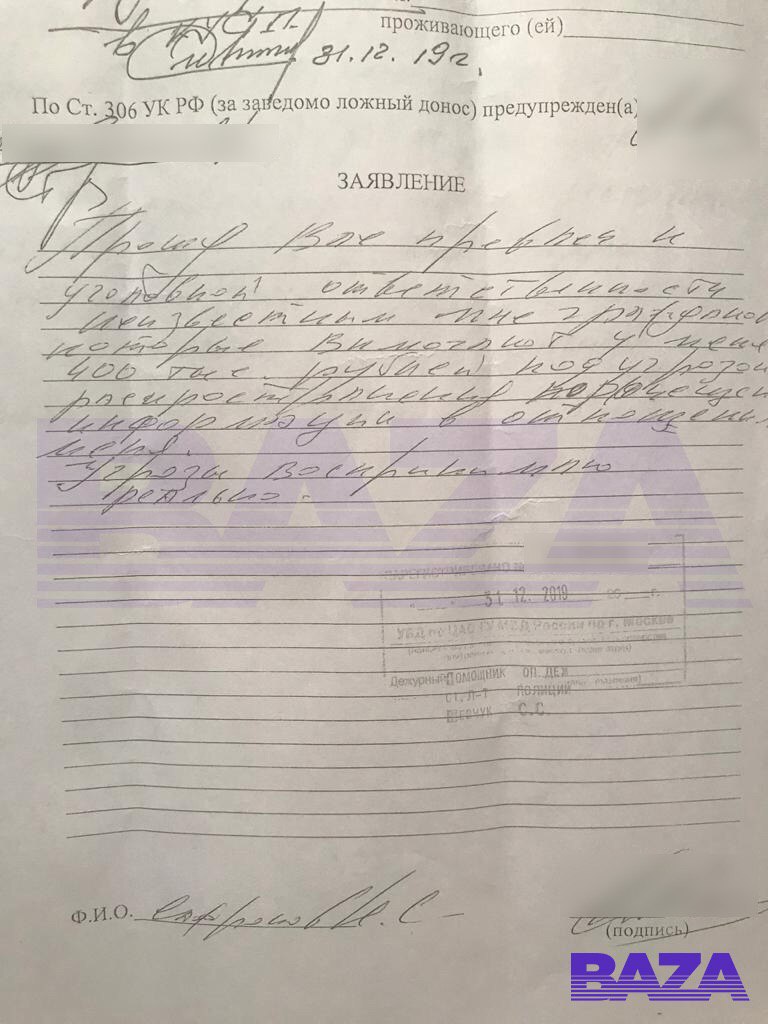 проживающего (ей)
31.12.19г.
По Ст. 306 УК РФ (за заведомо ложный донос) предупрежден(а)
ЗАЯВЛЕНИЕ
Прошу Вас привлеч к
уголовной ответственности
неизвестным мне граждан
которые вымогают у меня
400 тыс. рублей под угрозой
распространения порочащей
информации в отношении
меня.
Угрозы воспринимаю
реально.
BAZA
ЗАРЕГИСТРИРОВАНО
31.12.2019 г.
УВД по ЦАО ГУ МВД России по г. Москве
Дежурный ПОМОЩНИК ОП.ДЕЖ
СТ.Л-Т ПОЛИЦИИ
ШЕВЧУК С.С.
Ф.И.О. И.С
(подпись)
BAZA